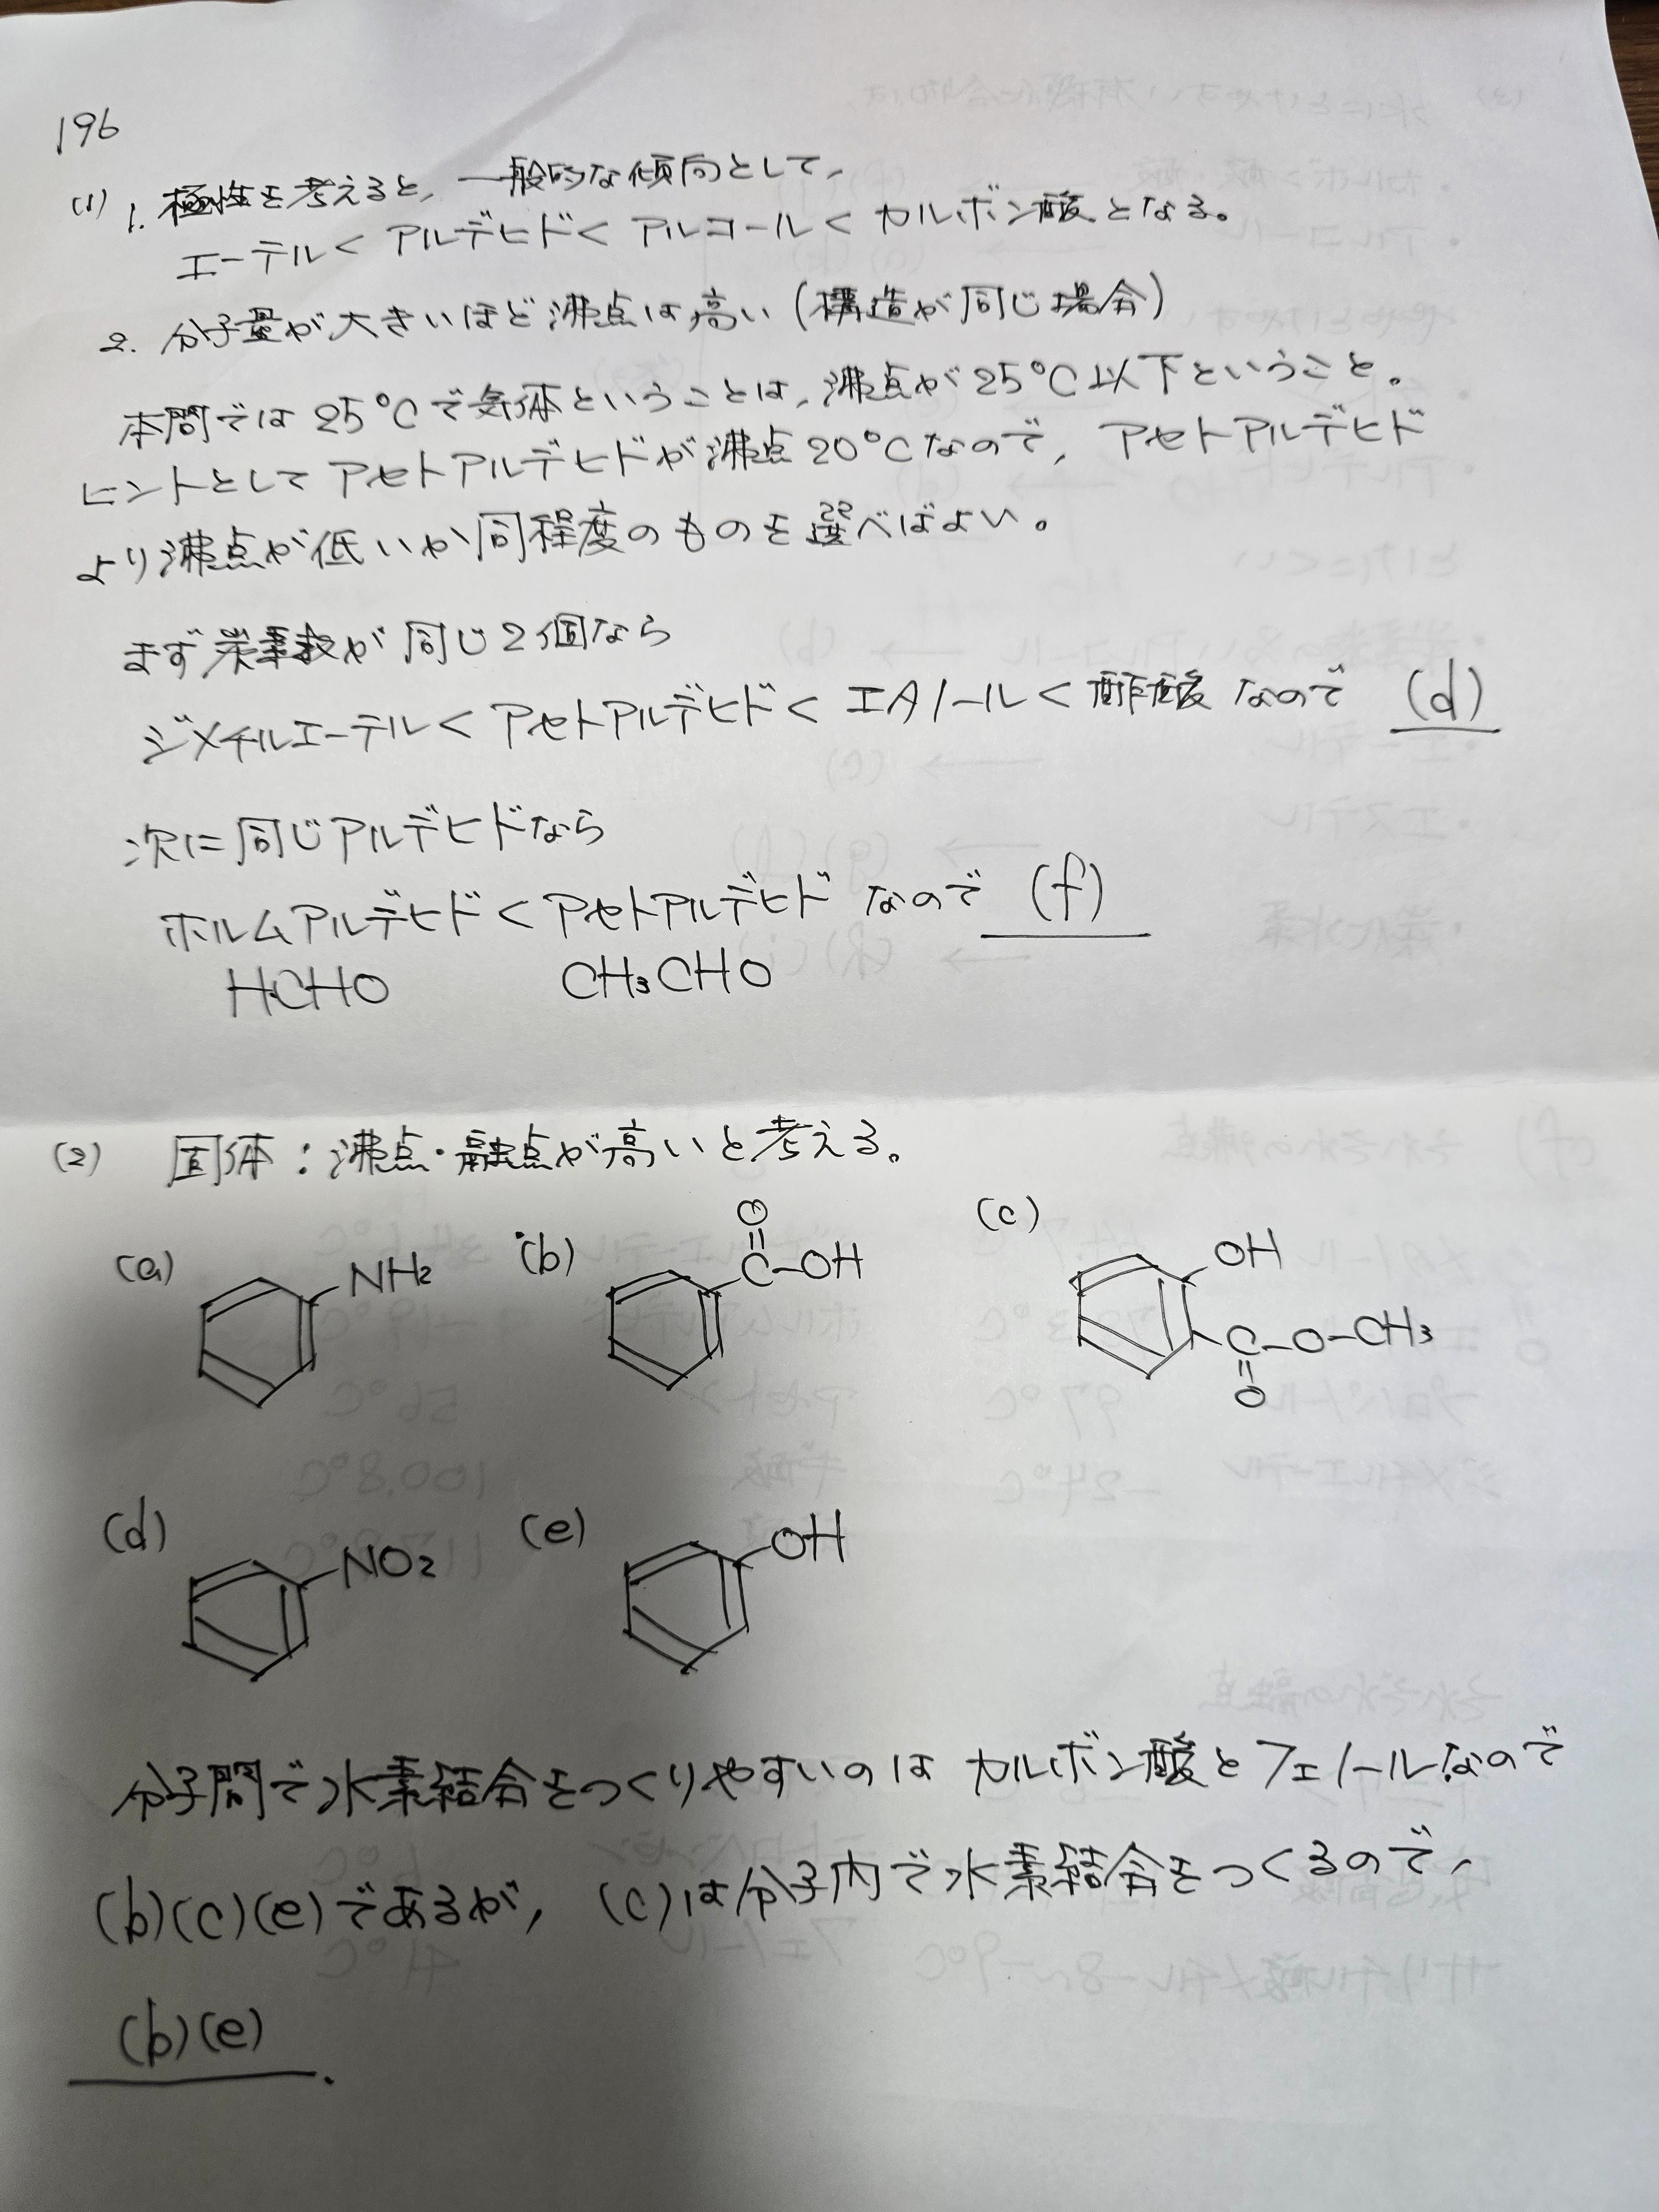 196
(1) 1. 極性を考えると、一般的な傾向として、
エーテル < アルデヒド < アルコール < カルボン酸 となる。
2. 分子量が大きいほど沸点は高い (構造が同じ場合)
本問では25℃で気体ということは、沸点が25℃以下ということ。
ヒントとしてアセトアルデヒドが沸点20℃なので、アセトアルデヒド
より沸点が低いか同程度のものを選べばよい。
まず炭素数が同じ2個なら
ジメチルエーテル < アセトアルデヒド < エタノール < 酢酸 なので (d)
次に同じアルデヒドなら
ホルムアルデヒド < アセトアルデヒド なので (f)
HCHO CH₃CHO
(2) 固体:沸点・融点が高いと考える。
(a) NH₂ (b) O C-OH (c) OH C-O-CH₃ O
(d) NO₂ (e) OH
分子間で水素結合をつくりやすいのは カルボン酸とフェノールなので
(b)(c)(e)であるが、(c)は分子内で水素結合をつくるので、
(b)(e).